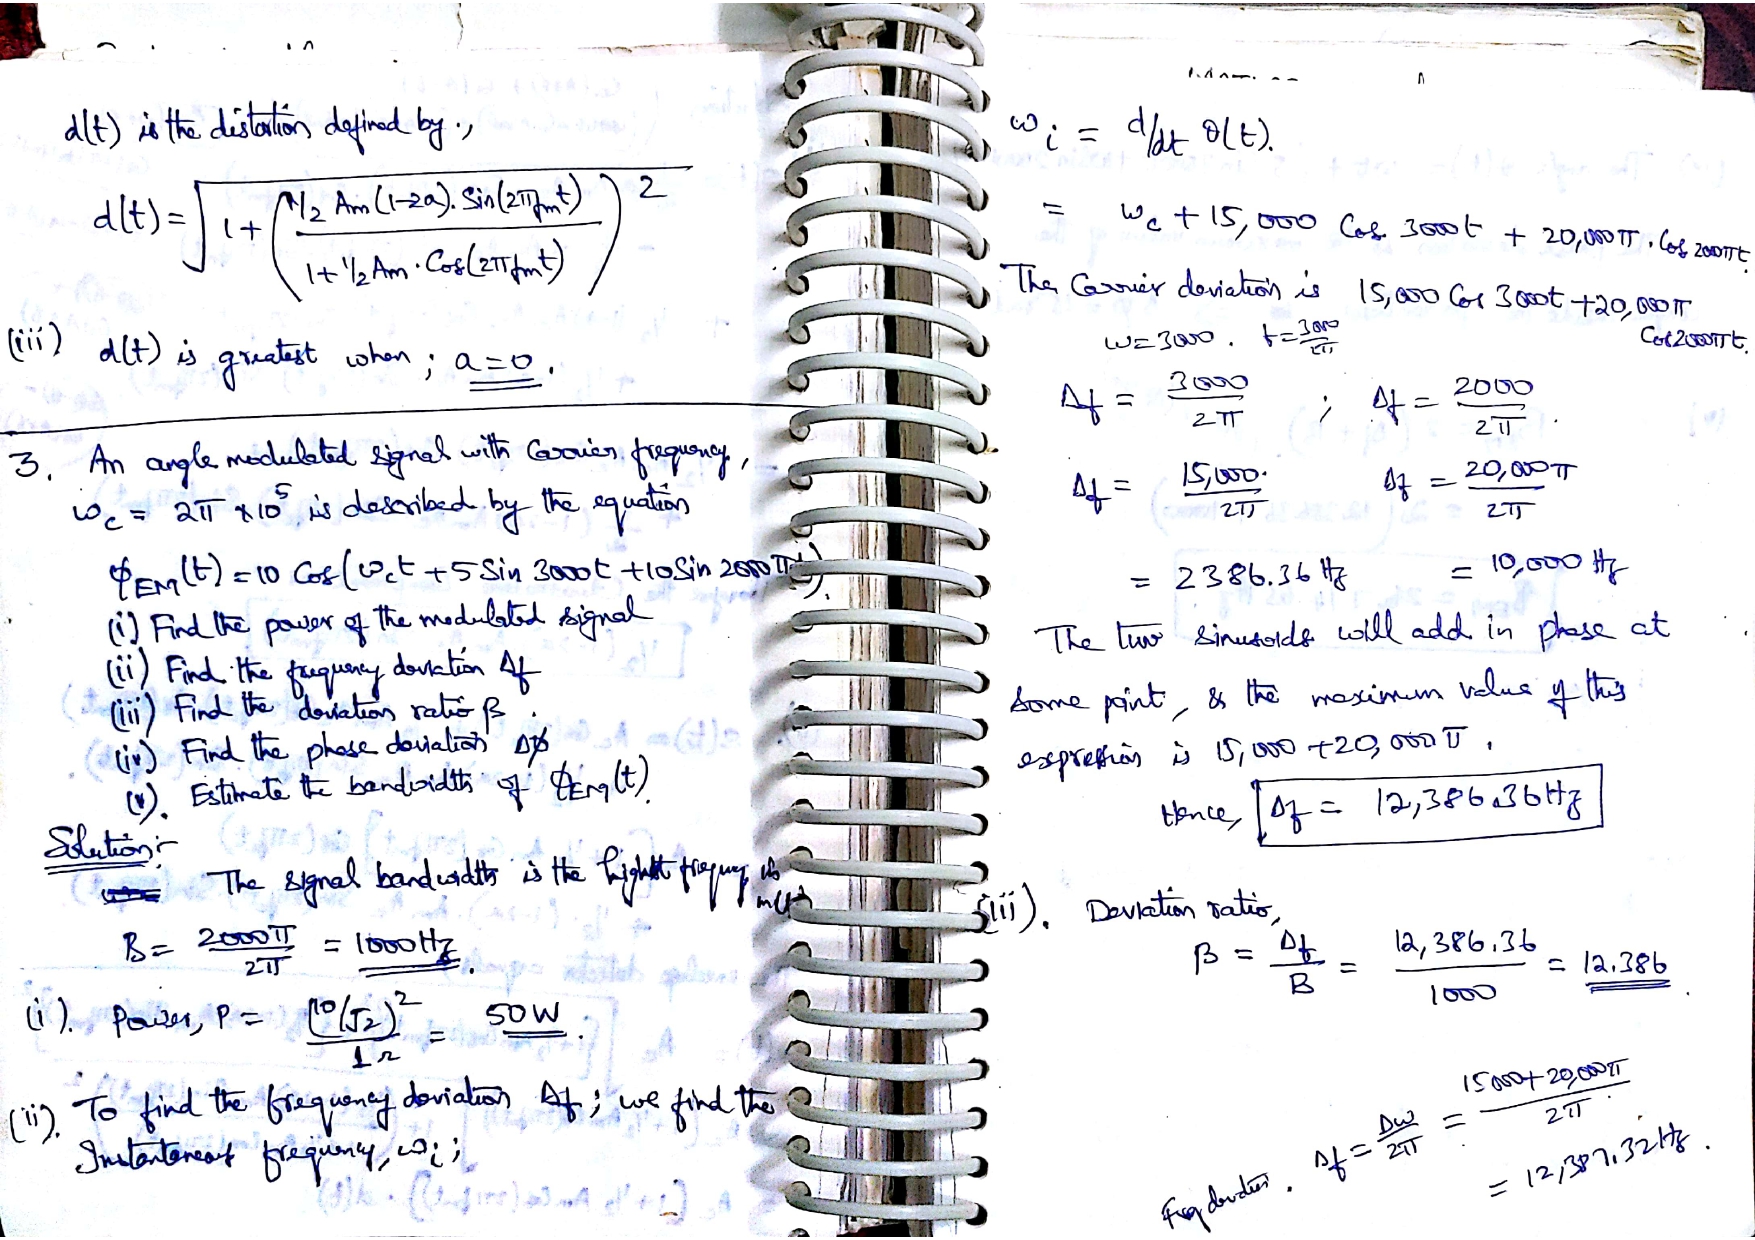 d(t) is the distortion defined by.,
d(t) = √(1 + ((1/2 Am (1-2a). Sin(2πfmt)) / (1 + 1/2 Am. Cos(2πfmt)))²)
(iii) d(t) is greatest when ; a=0.
3. An angle modulated signal with Carrier frequency,
ωc = 2π x 10⁵ is described by the equation
ϕEM(t) = 10 Cos(ωct + 5 Sin 3000t + 10 Sin 2000πt).
(i) Find the power of the modulated signal
(ii) Find the frequency deviation Δf
(iii) Find the deviation ratio β.
(iv) Find the phase deviation Δϕ
(v). Estimate the bandwidth of ϕEM(t).
Solution:-
The signal bandwidth is the highest frequency in m(t)
B = 2000π / 2π = 1000Hz.
(i). Power, P = (10/√2)² / 1Ω = 50W.
(ii). To find the frequency deviation Δf; we find the
Instantaneous frequency, ωi;
ωi = d/dt θ(t).
= ωc + 15,000 Cos 3000t + 20,000π. Cos 2000πt.
The Carrier deviation is 15,000 Cos 3000t + 20,000π
Cos 2000πt.
ω = 3000. f = 3000 / 2π
Δf = 3000 / 2π ; Δf = 2000 / 2π.
Δf = 15,000. / 2π Δf = 20,000π / 2π
= 2386.36 Hz = 10,000 Hz
The two sinusoids will add in phase at
some point, & the maximum value of this
expression is 15,000 + 20,000π,
Hence, Δf = 12,386.36Hz
(iii). Deviation ratio,
β = Δf / B = 12,386.36 / 1000 = 12.386.
Freq deviation. Δf = Δω / 2π = 15000 + 20,000π / 2π.
= 12,387.32Hz.